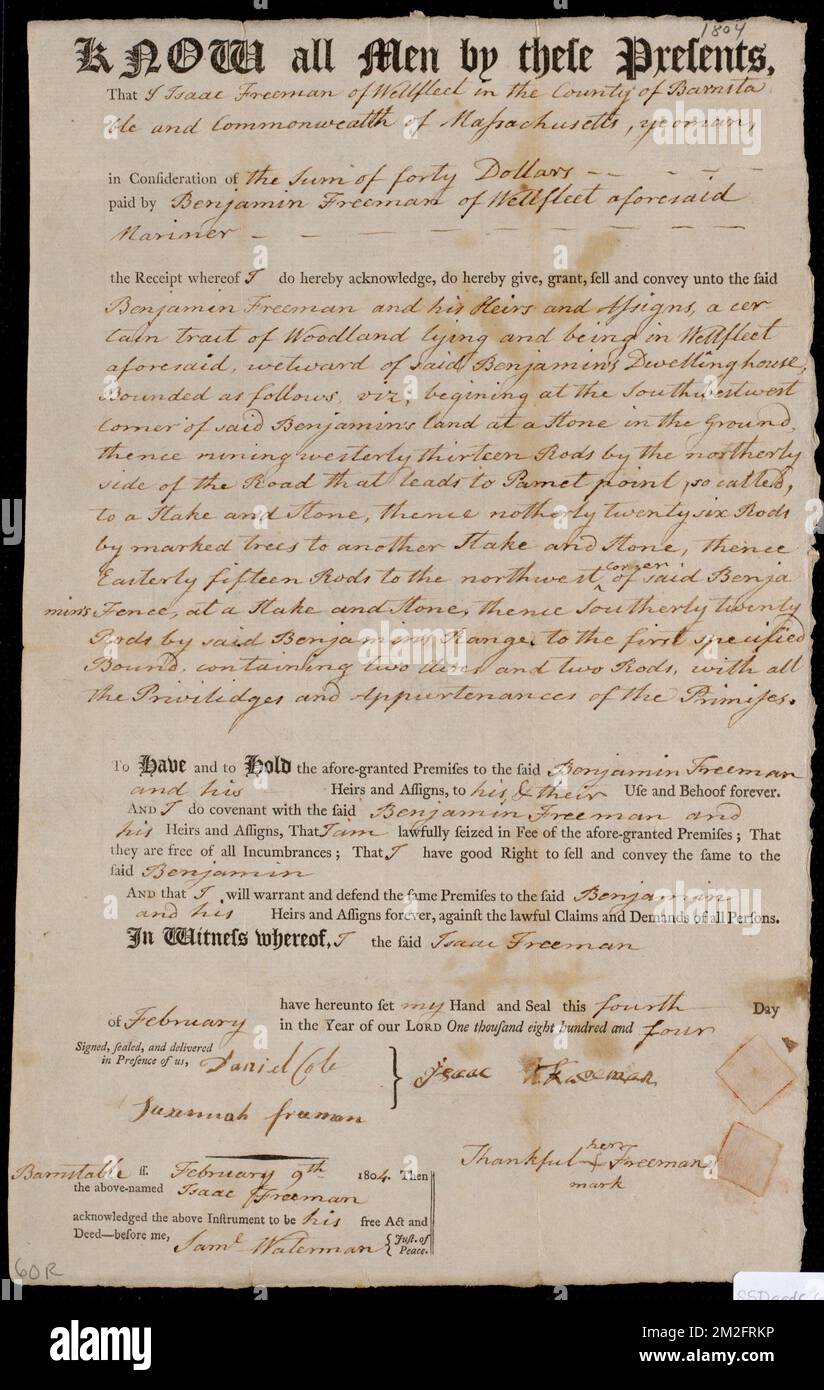 1804
KNOW all Men by theſe Preſents,
That I Isaac Freeman of Wellfleet in the County of Barnsta
ble and Commonwealth of Maſsachusetts, yeoman,
in Conſideration of the Sum of forty Dollars — — — — —
paid by Benjamin Freeman of Wellfleet aforesaid
Mariner — — — — — — — —
the Receipt whereof I do hereby acknowledge, do hereby give, grant, ſell and convey unto the ſaid
Benjamin Freeman and his Heirs and Aſsigns, a cer
tain trait of Woodland lying and being in Wellfleet
aforesaid, wetward of said Benjamin's Dwelling house,
Bounded as follows, viz; begining at the Southwestwest
Corner of said Benjamins land at a Stone in the Ground,
thence runing westerly thirteen Rods by the northerly
side of the Road that leads to Pamet point, so called,
to a Stake and Stone, thence notherly twenty six Rods
by marked trees to another Stake and Stone, thence
Easterly fifteen Rods to the northwest ^corner of said Benja
min's Fence, at a Stake and Stone, thence Southerly twenty
Rods by said Benjamin's Range, to the first specified
Bound, containing two Acres and two Rods, with all
the Priviledges and Appurtenances of the Primiſes.
To Have and to Hold the afore-granted Premiſes to the ſaid Benjamin Freeman
and his Heirs and Aſſigns, to his & their Uſe and Behoof forever.
AND I do covenant with the ſaid Benjamin Freeman and
his Heirs and Aſſigns, That I am lawfully ſeized in Fee of the afore-granted Premiſes; That
they are free of all Incumbrances; That I have good Right to ſell and convey the ſame to the
ſaid Benjamin
AND that I will warrant and defend the ſame Premiſes to the ſaid Benjamin
and his Heirs and Aſſigns forever, againſt the lawful Claims and Demands of all Perſons.
In Witneſs whereof, I the ſaid Isaac Freeman
have hereunto ſet my Hand and Seal this fourth Day
of February in the Year of our LORD One thouſand eight hundred and four
Signed, ſealed, and delivered
in Preſence of us, Daniel Cole } Isaac Freeman
Jeremiah freeman
Thankful her X Freeman
mark
Barnstable ſſ. February 9th 1804. Then
the above-named Isaac Freeman
acknowledged the above Inſtrument to be his free Act and
Deed—before me, Saml Waterman { Juſt. of
Peace.
60R
alamy
Image ID: 2M2FRKP
www.alamy.com